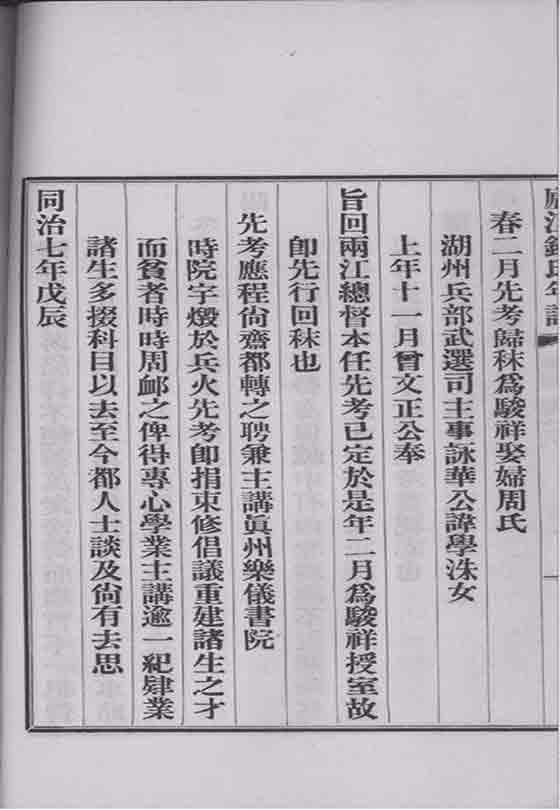 春二月先考歸秣爲駿祥娶婦周氏
湖州兵部武選司主事詠華公諱學洙女
上年十一月曾文正公奉
旨回兩江總督本任先考已定於是年二月爲駿祥授室故
卽先行回秣也
先考應程尙齋都轉之聘兼主講眞州樂儀書院
時院宇燬於兵火先考卽捐束修倡議重建諸生之才
而貧者時時周卹之俾得專心學業主講逾一紀肄業
諸生多掇科目以去至今都人士談及尙有去思
同治七年戊辰